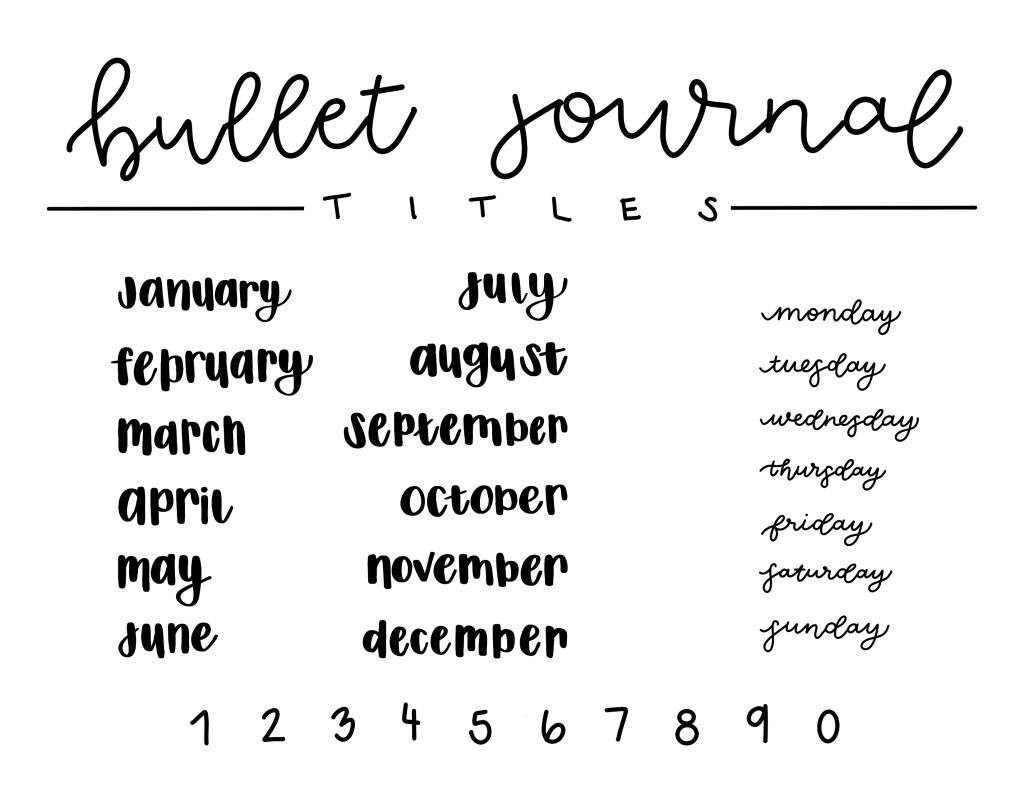 bullet journal
TITLES
january
february
march
april
may
june
july
august
september
october
november
december
monday
tuesday
wednesday
thursday
friday
saturday
sunday
1 2 3 4 5 6 7 8 9 0